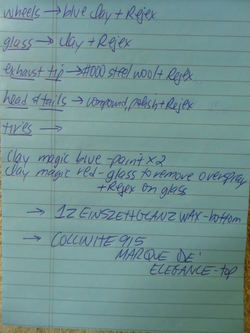 wheels → blue clay + Rejex
glass → clay + Rejex
exhaust tip → #000 steel wool + Rejex
head & tails → compound, polish + Rejex
tires →
clay magic blue - paint x 2
clay magic red - glass to remove overspray
+ Rejex on glass
→ 1Z EINSZETT GLANZ WAX - bottom
→ COLLINITE 915
MARQUE DE'
ELEGANCE - top